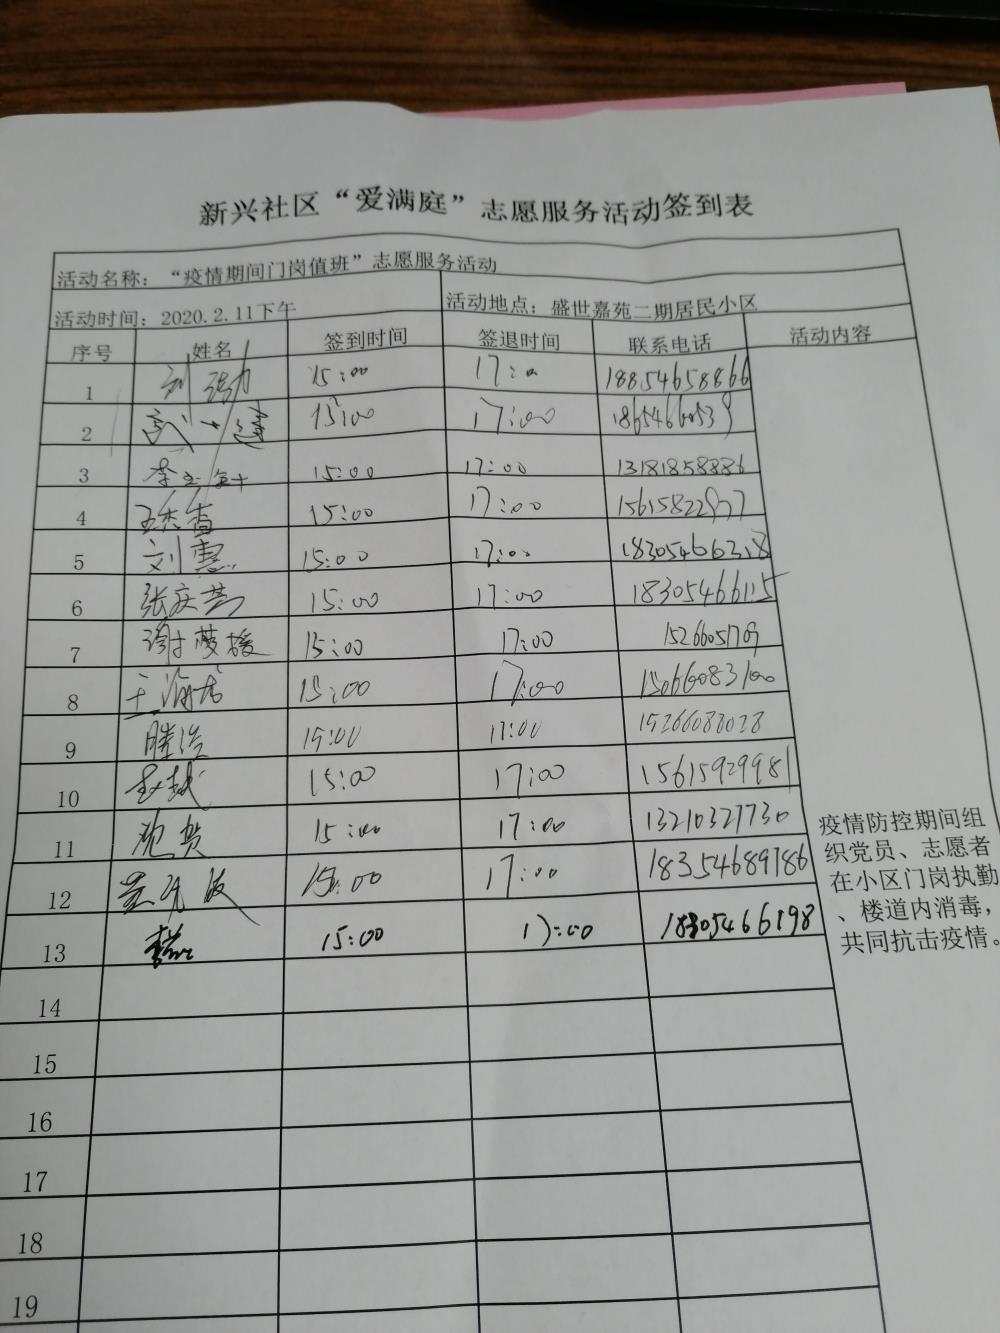 新兴社区“爱满庭”志愿服务活动签到表
活动名称：“疫情期间门岗值班”志愿服务活动
活动时间：2020.2.11下午 活动地点：盛世嘉苑二期居民小区
序号 姓名 签到时间 签退时间 联系电话 活动内容
1 15:00 17:0 18854658866
2 15:00 17:00 18654660539
3 15:00 17:00 13181858886
4 王杰香 15:00 17:00 15615822977
5 刘惠 15:00 17:00 18305466318
6 张庆营 15:00 17:00 18305466115
7 谢梦媛 15:00 17:00 1526605709
8 王海龙 15:00 17:00 15066083100
9 滕滢 15:00 17:00 15266088028
10 赵越 15:00 17:00 15615929981
11 15:00 17:00 13210327730
12 15:00 17:00 18354689786
13 15:00 17:00 18305466198
疫情防控期间组
织党员、志愿者
在小区门岗执勤
、楼道内消毒，
共同抗击疫情。
14
15
16
17
18
19